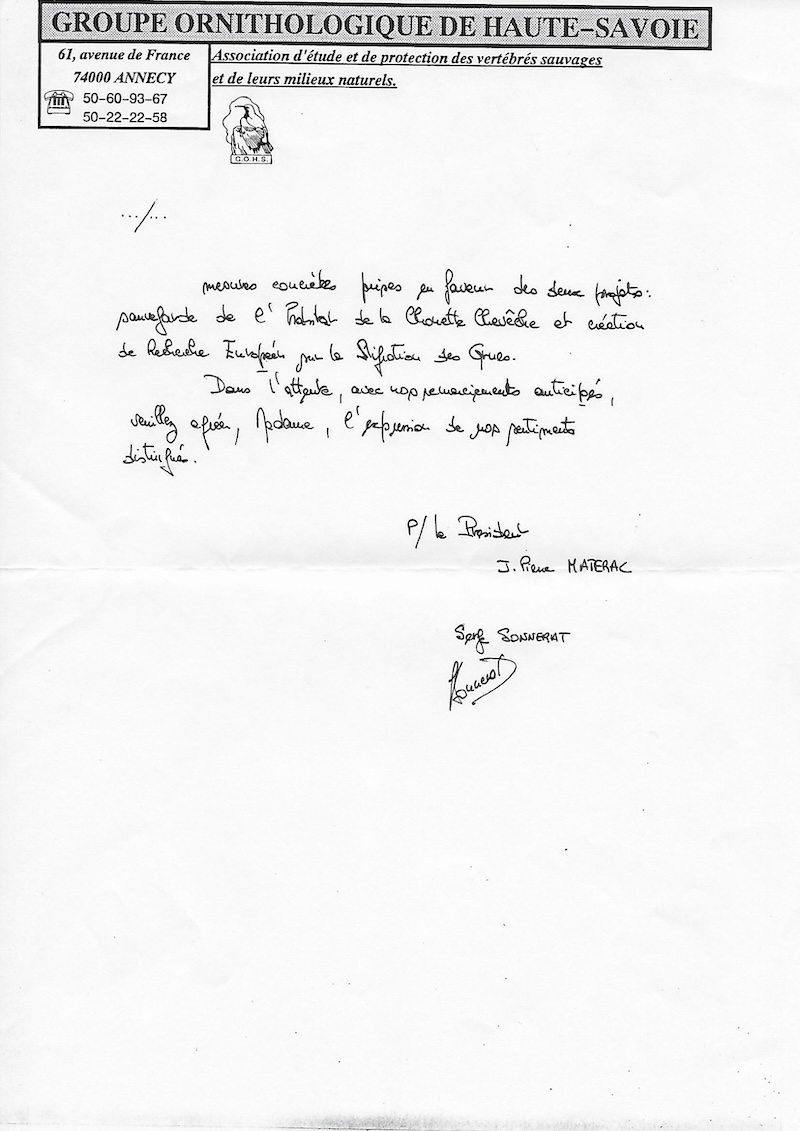 GROUPE ORNITHOLOGIQUE DE HAUTE-SAVOIE
61, avenue de France
74000 ANNECY
50-60-93-67
50-22-22-58
Association d'étude et de protection des vertébrés sauvages
et de leurs milieux naturels.
G.O.H.S.
.../...
mesures concrètes prises en faveur des deux projets:
sauvegarde de l'Habitat de la Chouette Chevêche et création
de Recherche Européen sur la Migration des Grues.
Dans l'attente, avec nos remerciements anticipés,
veuillez agréer, Madame, l'expression de nos sentiments
distingués.
P/ le Président
J. Pierre MATERAC
Serge SONNERAT
Sonnerat